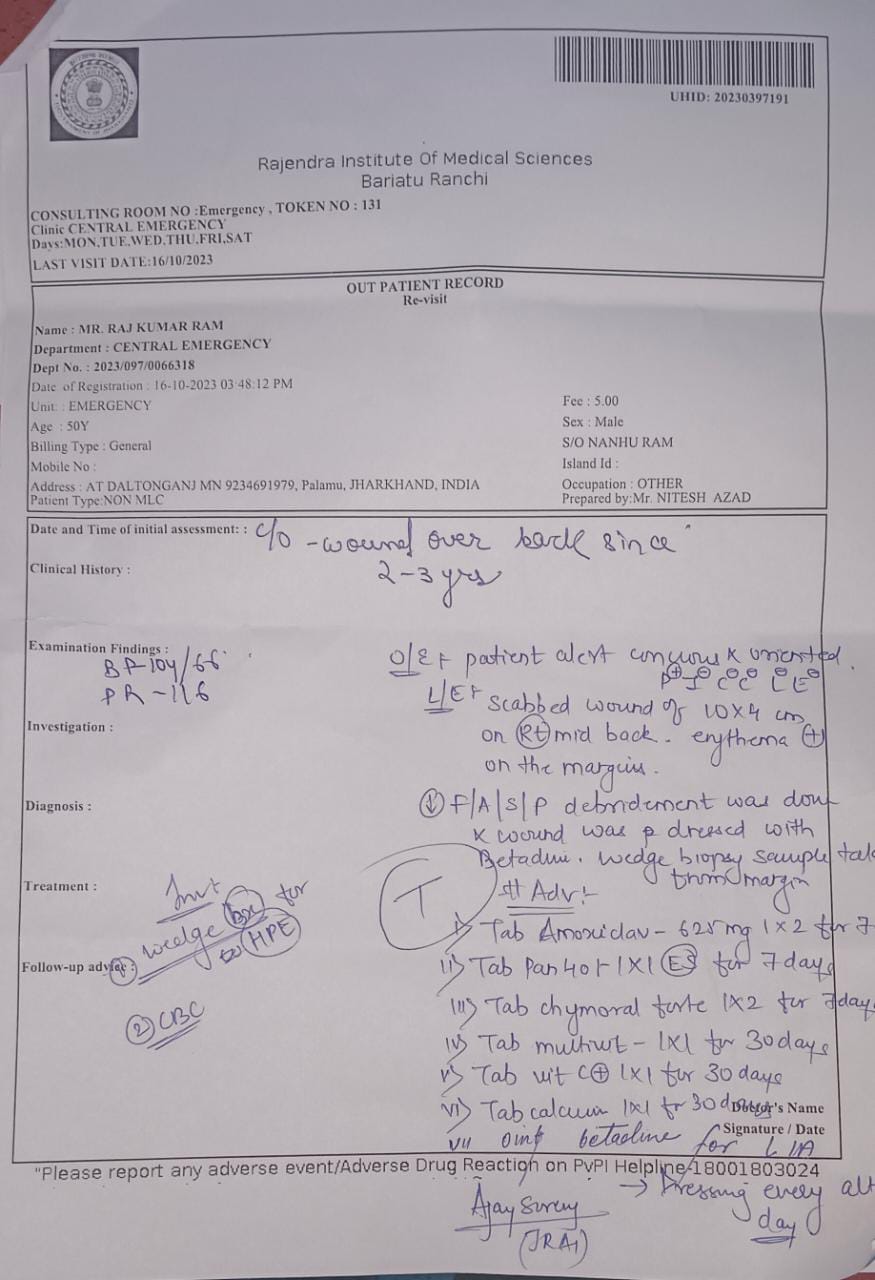 UHID: 20230397191
Rajendra Institute Of Medical Sciences
Bariatu Ranchi
CONSULTING ROOM NO :Emergency , TOKEN NO : 131
Clinic CENTRAL EMERGENCY
Days:MON,TUE,WED,THU,FRI,SAT
LAST VISIT DATE:16/10/2023
OUT PATIENT RECORD
Re-visit
Name : MR. RAJ KUMAR RAM
Department : CENTRAL EMERGENCY
Dept No. : 2023/097/0066318
Date of Registration : 16-10-2023 03:48:12 PM
Unit: : EMERGENCY
Fee : 5.00
Age : 50Y
Sex : Male
Billing Type : General
S/O NANHU RAM
Mobile No :
Island Id :
Address : AT DALTONGANJ MN 9234691979, Palamu, JHARKHAND, INDIA
Occupation : OTHER
Patient Type:NON MLC
Prepared by:Mr. NITESH AZAD
Date and Time of initial assessment: : C/O - wound over back since
Clinical History :
2-3 yrs
Examination Findings :
BP-104/66
PR-116
O/E patient alert oriented.
P⊕ I⊖ C⊖ C⊖ L⊖ E⊖
L/E scabbed wound of 10x4 cm
on Rt mid back. erythema ⊕
on the margins.
Investigation :
Diagnosis :
F/A/S/P debridement was
wound was dressed with
wedge biopsy sample
from margin
Treatment :
Invt
wedge Bx for
HPE
T
Adv:-
i) Tab Amoxiclav - 625 mg 1x2 for 7
Follow-up advice :
ii) Tab Pan 40 1x1 ES for 7 days
iii) Tab chymoral forte 1x2 for 7 day
② CBC
iv) Tab multivit - 1x1 for 30 days
v) Tab vit C ⊕ 1x1 for 30 days
vi) Tab calcium 1x1 for 30 days
Doctor's Name
Signature / Date
vii oint betadine for L/A
"Please report any adverse event/Adverse Drug Reaction on PvPI Helpline-18001803024
→ Dressing every alt
day
Ajay